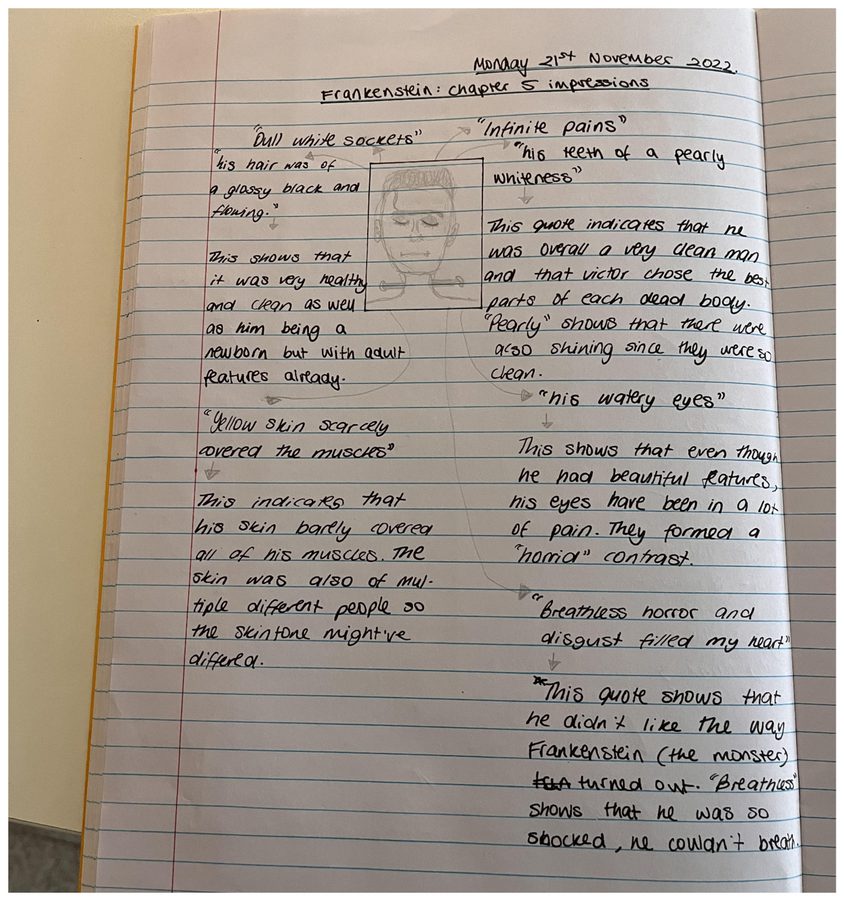 Monday 21st November 2022.
Frankenstein: chapter 5 impressions
"Dull white sockets"
"his hair was of
a glossy black and
flowing."
This shows that
it was very healthy
and clean as well
as him being a
newborn but with adult
features already.
"Yellow skin scarcely
covered the muscles"
This indicates that
his skin barely covered
all of his muscles. The
skin was also of mul-
tiple different people so
the skintone might've
differed.
"Infinite pains"
"his teeth of a pearly
whiteness"
This quote indicates that he
was overall a very clean man
and that victor chose the best
parts of each dead body.
"Pearly" shows that there were
also shining since they were so
clean.
"his watery eyes"
This shows that even though
he had beautiful features,
his eyes have been in a lot
of pain. They formed a
"horrid" contrast.
"Breathless horror and
disgust filled my heart"
This quote shows that
he didn't like the way
Frankenstein (the monster)
turned out. "Breathless"
shows that he was so
shocked, he couldn't breath.